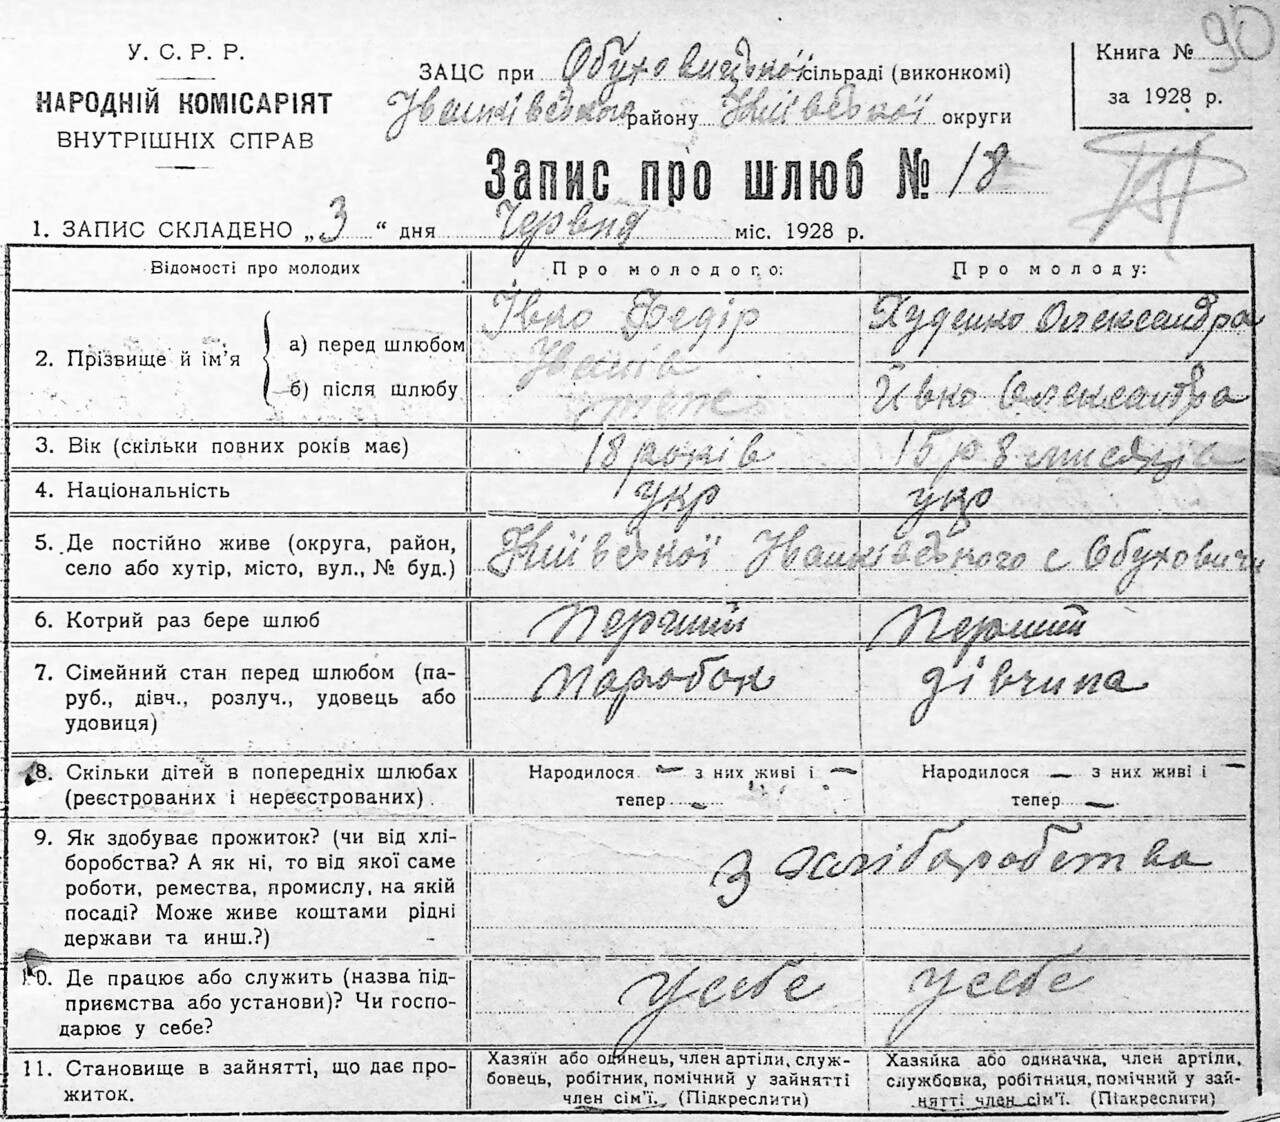 У. С. Р. Р.
НАРОДНІЙ КОМІСАРІЯТ
ВНУТРІШНІХ СПРАВ
ЗАЦС при Обуховицької сільраді (виконкомі)
Іванківського району Київської округи
Книга № 90
за 1928 р.
Запис про шлюб № 18
1. ЗАПИС СКЛАДЕНО „3“ дня Червня міс. 1928 р.
Відомості про молодих
Про молодого:
Про молоду:
2. Прізвище й ім'я
а) перед шлюбом
б) після шлюбу
Івко Федір
Іванів
теж
Худенко Олександра
Йвко Олександра
3. Вік (скільки повних років має)
18 років
15 р 8 місяців
4. Національність
укр
укр
5. Де постійно живе (округа, район,
село або хутір, місто, вул., № буд.)
Київської Іванківського с Обуховичи
6. Котрий раз бере шлюб
перший
перший
7. Сімейний стан перед шлюбом (па-
руб., дівч., розлуч., удовець або
удовиця)
паробок
дівчина
8. Скільки дітей в попередніх шлюбах
(реєстрованих і нереєстрованих)
Народилося — з них живі і —
тепер —
Народилося — з них живі і —
тепер —
9. Як здобуває прожиток? (чи від хлі-
боробства? А як ні, то від якої саме
роботи, ремества, промислу, на якій
посаді? Може живе коштами рідні
держави та инш.?)
З хліборобства
10. Де працює або служить (назва під-
приємства або установи)? Чи госпо-
дарює у себе?
у себе
у себе
11. Становище в зайнятті, що дає про-
житок.
Хазяїн або одинець, член артіли, служ-
бовець, робітник, помічний у зайнятті
член сім'ї. (Підкреслити)
Хазяйка або одиначка, член артіли,
службовка, робітниця, помічний у зай-
нятті член сім'ї. (Підкреслити)